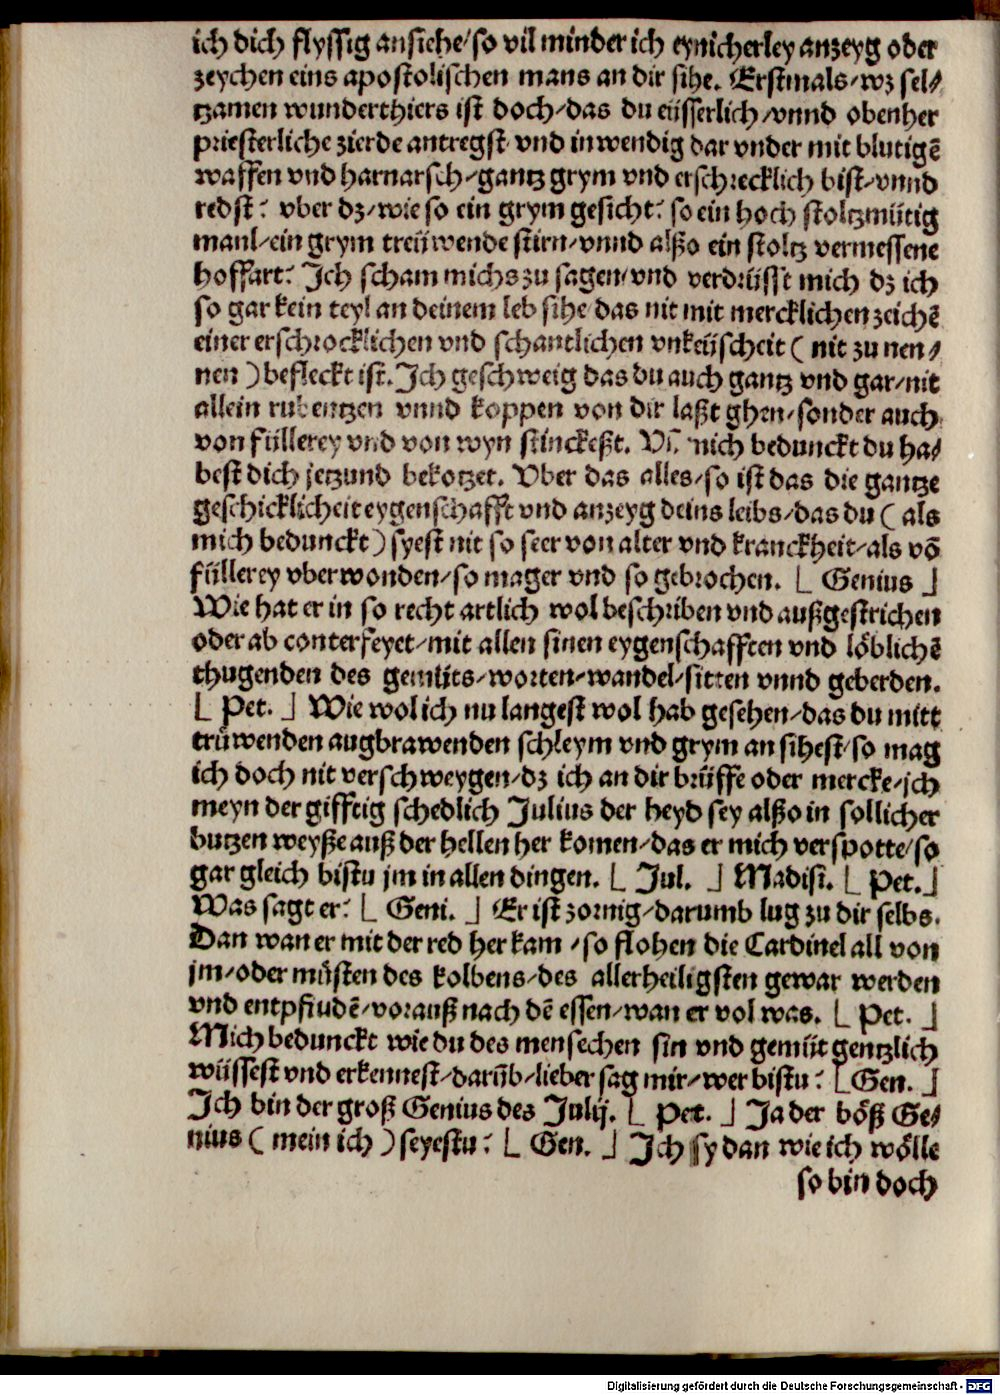 ich dich flyssig ansiehe/so vil minder ich eynicherley anzeyg oder
zeychen eins apostolischen mans an dir sihe. Erstmals/wz sel/
tzamen wunderthiers ist doch/das du eüsserlich/vnnd obenher
priesterliche zierde antregst vnd inwendig dar vnder mit blutigē
waffen vnd harnarsch/gantz grym vnd erschrecklich bist/vnnd
redst: vber dz/wie so ein grym gesicht: so ein hoch stoltzmütig
maul/ein grym treüwende stirn/vnnd alßo ein stoltz vermessene
hoffart: Ich scham michs zu sagen/vnd verdrüsst mich dz ich
so gar kein teyl an deinem leb sihe das nit mit mercklichen zeichē
einer erschrocklichen vnd schantlichen vnkeüscheit ( nit zu nen/
nen ) befleckt ist. Ich geschweig das du auch gantz vnd gar/nit
allein rubentzen vnnd koppen von dir laßt ghen/sonder auch
von füllerey vnd von wyn stinckeßt. mich bedunckt du ha/
best dich jetzund bekotzet. Vber das alles/so ist das die gantze
geschicklicheit eygenschafft vnd anzeyg deins leibs/das du ( als
mich bedunckt ) syest nit so seer von alter vnd kranckheit/als vō
füllerey vberwonden/so mager vnd so gebrochen. [ Genius ]
Wie hat er in so recht artlich wol beschriben vnd außgestrichen
oder ab conterfeyet/mit allen sinen eygenschafften vnd löblichē
thugenden des gemüts/worten/wandel/sitten vnnd geberden.
[ Pet. ] Wie wol ich nu langest wol hab gesehen/das du mitt
trüwenden augbrawenden schleym vnd grym an sihest/so mag
ich doch nit verschweygen/dz ich an dir brüffe oder mercke/ich
meyn der gifftig schedlich Julius der heyd sey alßo in sollicher
butzen weyße auß der hellen her komen/das er mich verspotte/so
gar gleich bistu jm in allen dingen. [ Jul. ] Madisi. [ Pet. ]
Was sagt er: [ Geni. ] Er ist zornig/darumb lug zu dir selbs.
Dan wan er mit der red her kam/so flohen die Cardinel all von
jm/oder müsten des kolbens/des allerheiligsten gewar werden
vnd entpfindē/vorauß nach dē essen/wan er vol was. [ Pet. ]
Mich bedunckt wie du des menschen sin vnd gemüt gentzlich
wüssest vnd erkennest/darüb/lieber sag mir/wer bistu: [ Gen. ]
Ich bin der groß Genius des Julij. [ Pet. ] Ja der böß Ge/
nius ( mein ich ) seyestu: [ Gen. ] Ich sy dan wie ich wölle
so bin doch
Digitalisierung gefördert durch die Deutsche Forschungsgemeinschaft - DFG